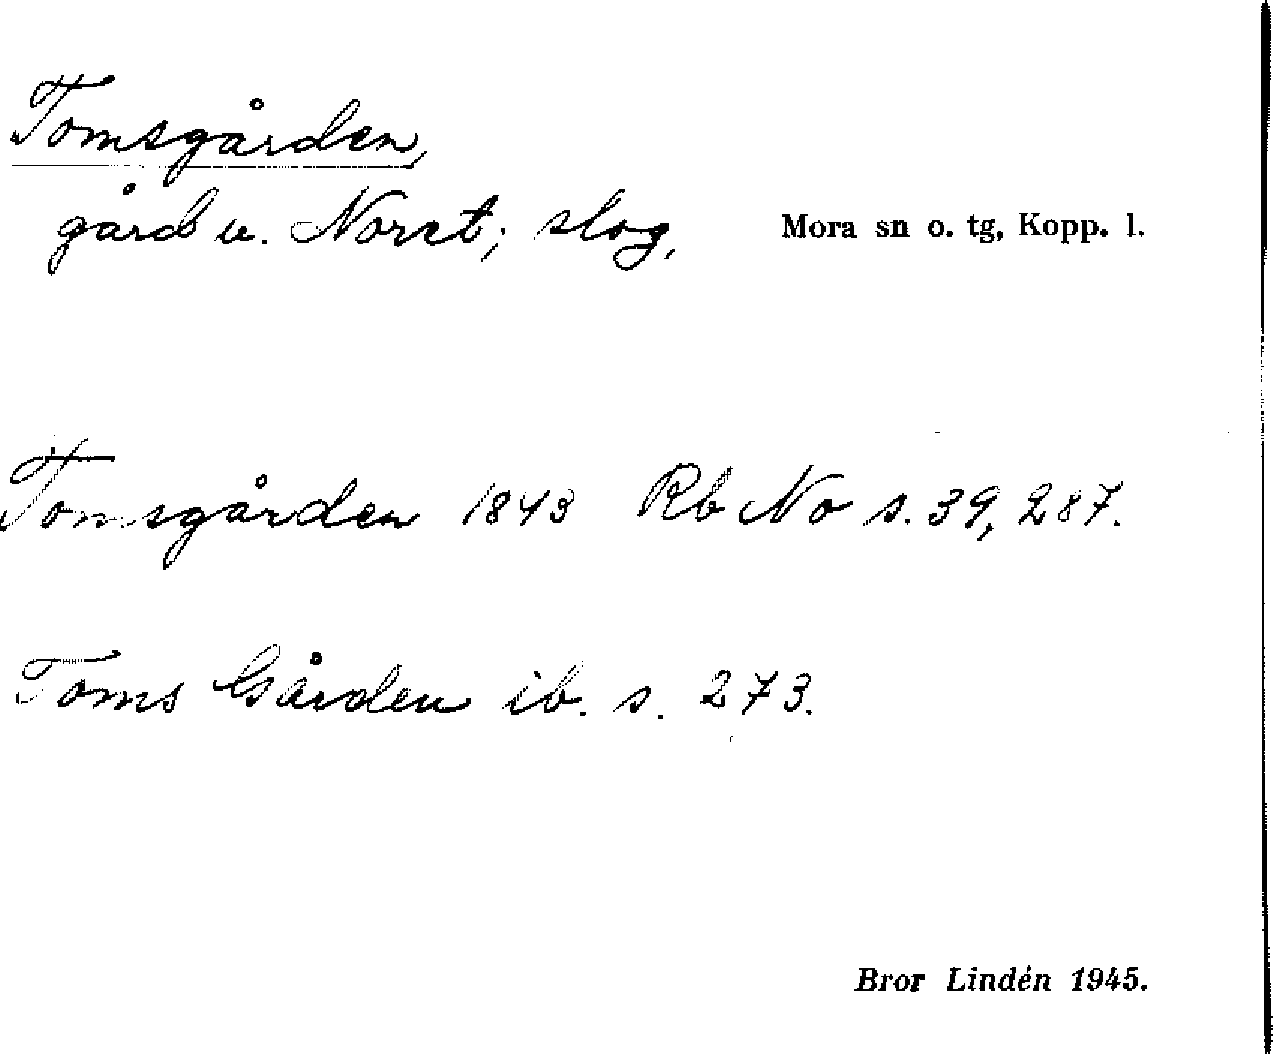 Tomsgården,
gård u. Noret; slog, Mora sn o. tg, Kopp. l.
Tomsgården 1843 Rb No s. 39, 287.
Toms Gården ib. s. 273.
Bror Lindén 1945.